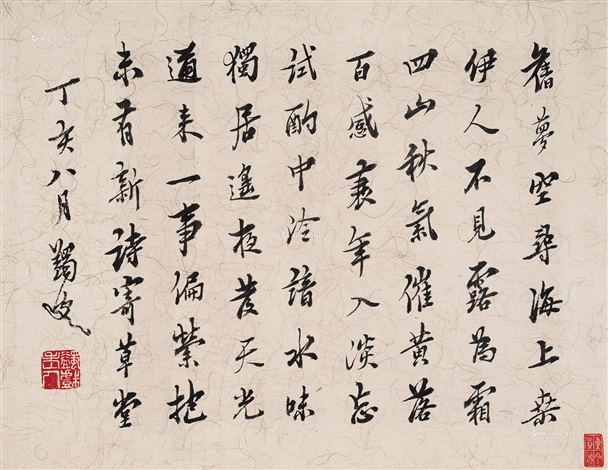 舊夢空尋海上桑
伊人不見露為霜
四山秋氣催黃落
百感衰年入淡忘
試酌中泠諳水味
獨居遙夜發天光
邇來一事偏縈抱
未有新詩寄草堂
丁亥八月 蠲叟